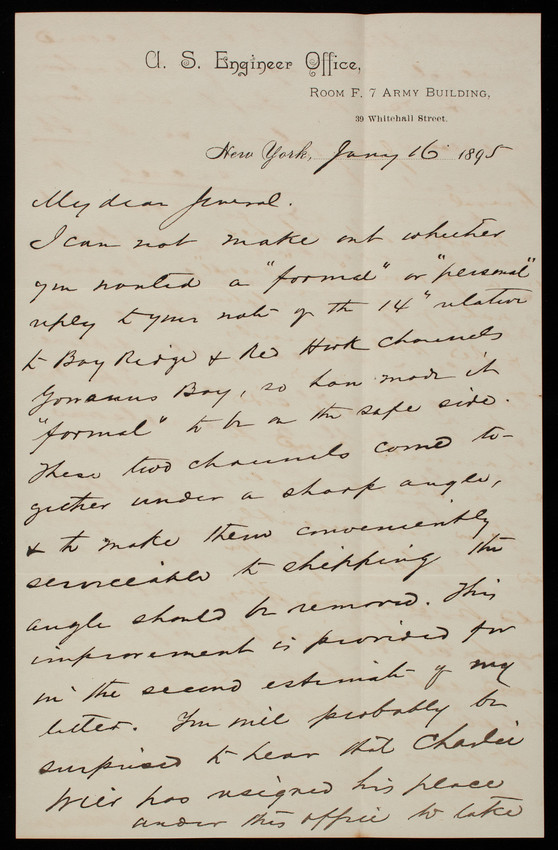 U. S. Engineer Office,
Room F. 7 Army Building,
39 Whitehall Street.
New York, Jany 16 1895
My dear General.
I can not make out whether
you wanted a "formal" or "personal"
reply to your note of the 14" relative
to Bay Ridge & Red Hook Channels
Gowanus Bay, so have made it
"formal" to be on the safe side.
These two channels come to-
gether under a sharp angle,
& to make them conveniently
serviceable to shipping the
angle should be removed. This
improvement is provided for
in the second estimate of my
letter. You will probably be
surprised to hear that Charlie
Weir has resigned his place
under this office to take